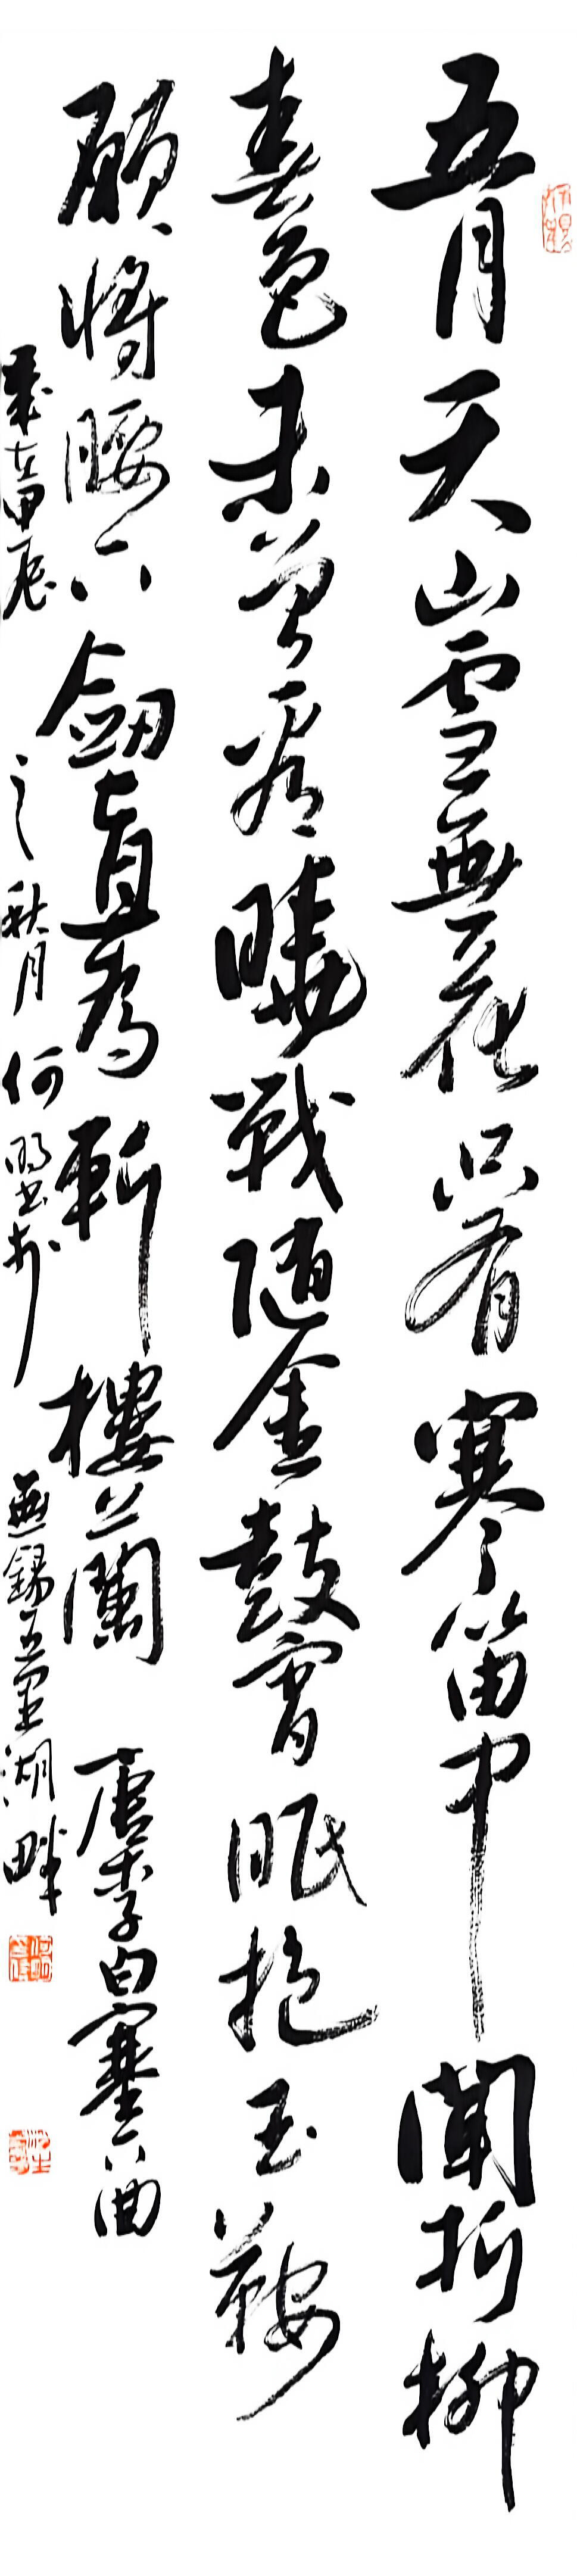 五月天山雪無花只有寒笛中聞折柳
春色未曾看曉戰隨金鼓宵眠抱玉鞍
願將腰下劍直為斬樓蘭 唐李白塞下曲
歲在甲辰之秋月何 書於無錫五里湖畔